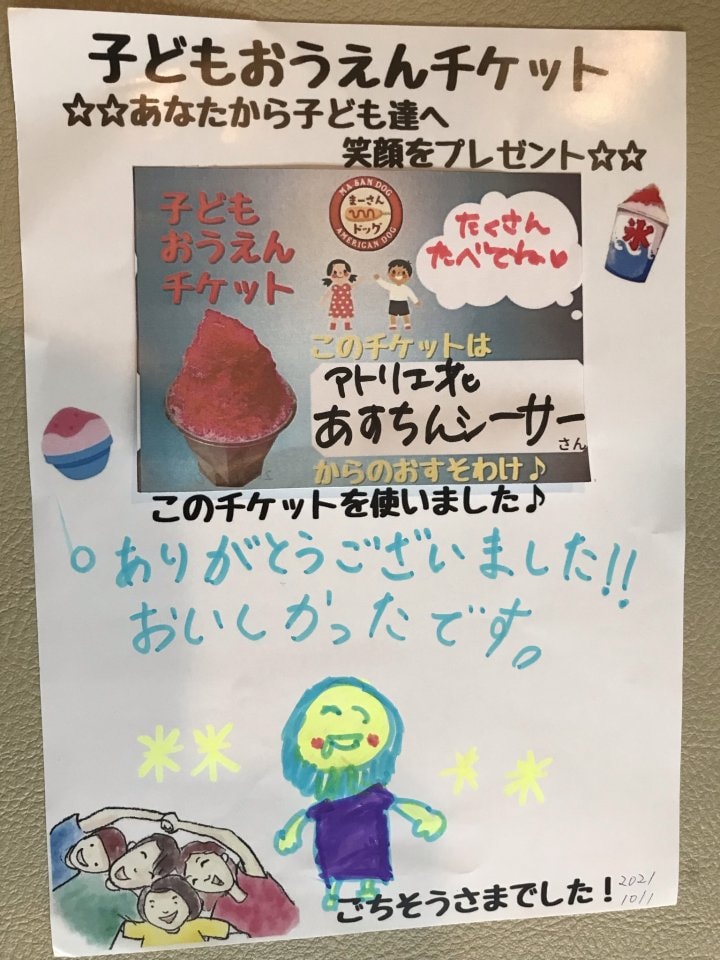 子どもおうえんチケット
☆☆あなたから子ども達へ
笑顔をプレゼント☆☆
子ども
おうえん
チケット
MA SAN DOG
まーさん
ドッグ
AMERICAN DOG
たくさん
たべてねー♥
氷
このチケットは
アトリエ
あすちんシーサー
さん
からのおすそわけ♪
このチケットを使いました♪
ありがとうございました!!
おいしかったです。
ごちそうさまでした！
2021
10/1